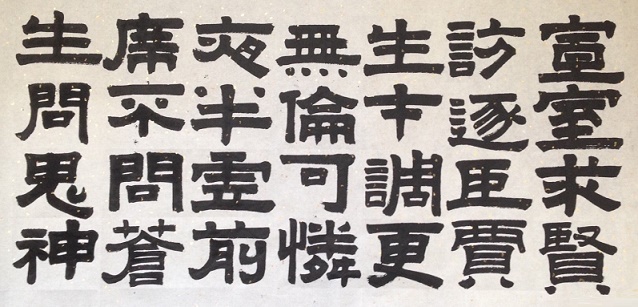 宣室求賢
訪逐臣賈
生才調更
無倫可憐
夜半虛前
席不問蒼
生問鬼神